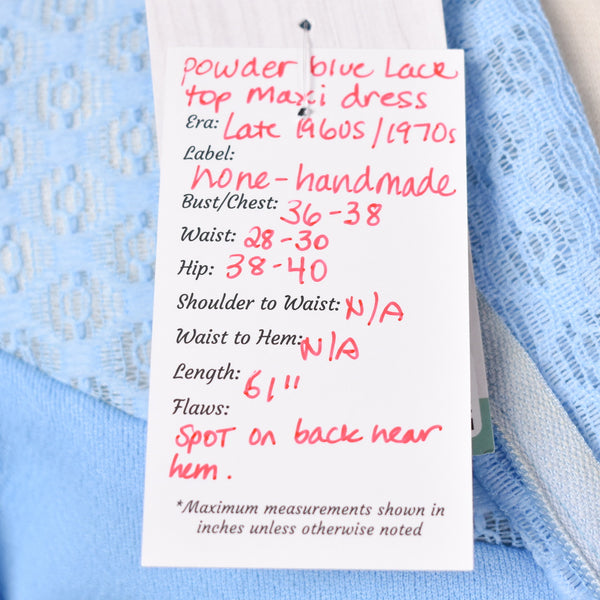 powder blue Lace
top Maxi dress
Era: Late 1960s/1970s
Label:
none-handmade
Bust/Chest: 36-38
Waist: 28-30
Hip: 38-40
Shoulder to Waist: N/A
Waist to Hem: N/A
Length: 61"
Flaws:
SPOT on back near
hem.
*Maximum measurements shown in
inches unless otherwise noted